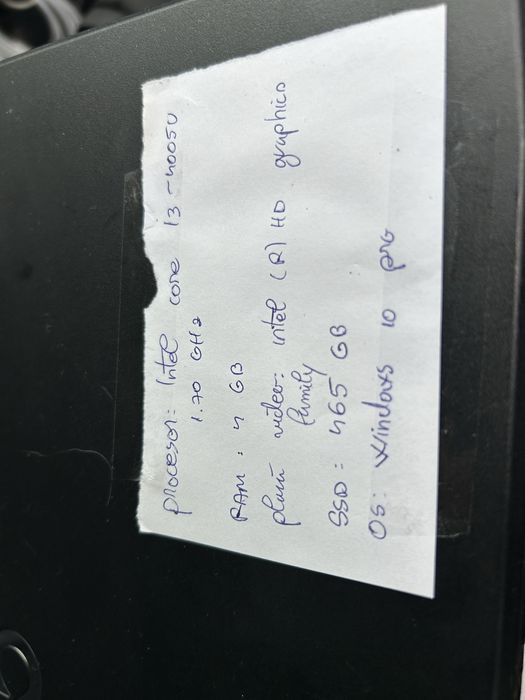 procesor: Intel core i3-4005U
1.70 GHz
RAM: 4 GB
placă video: intel (R) HD graphics
family
SSD: 465 GB
OS: Windows 10 pro